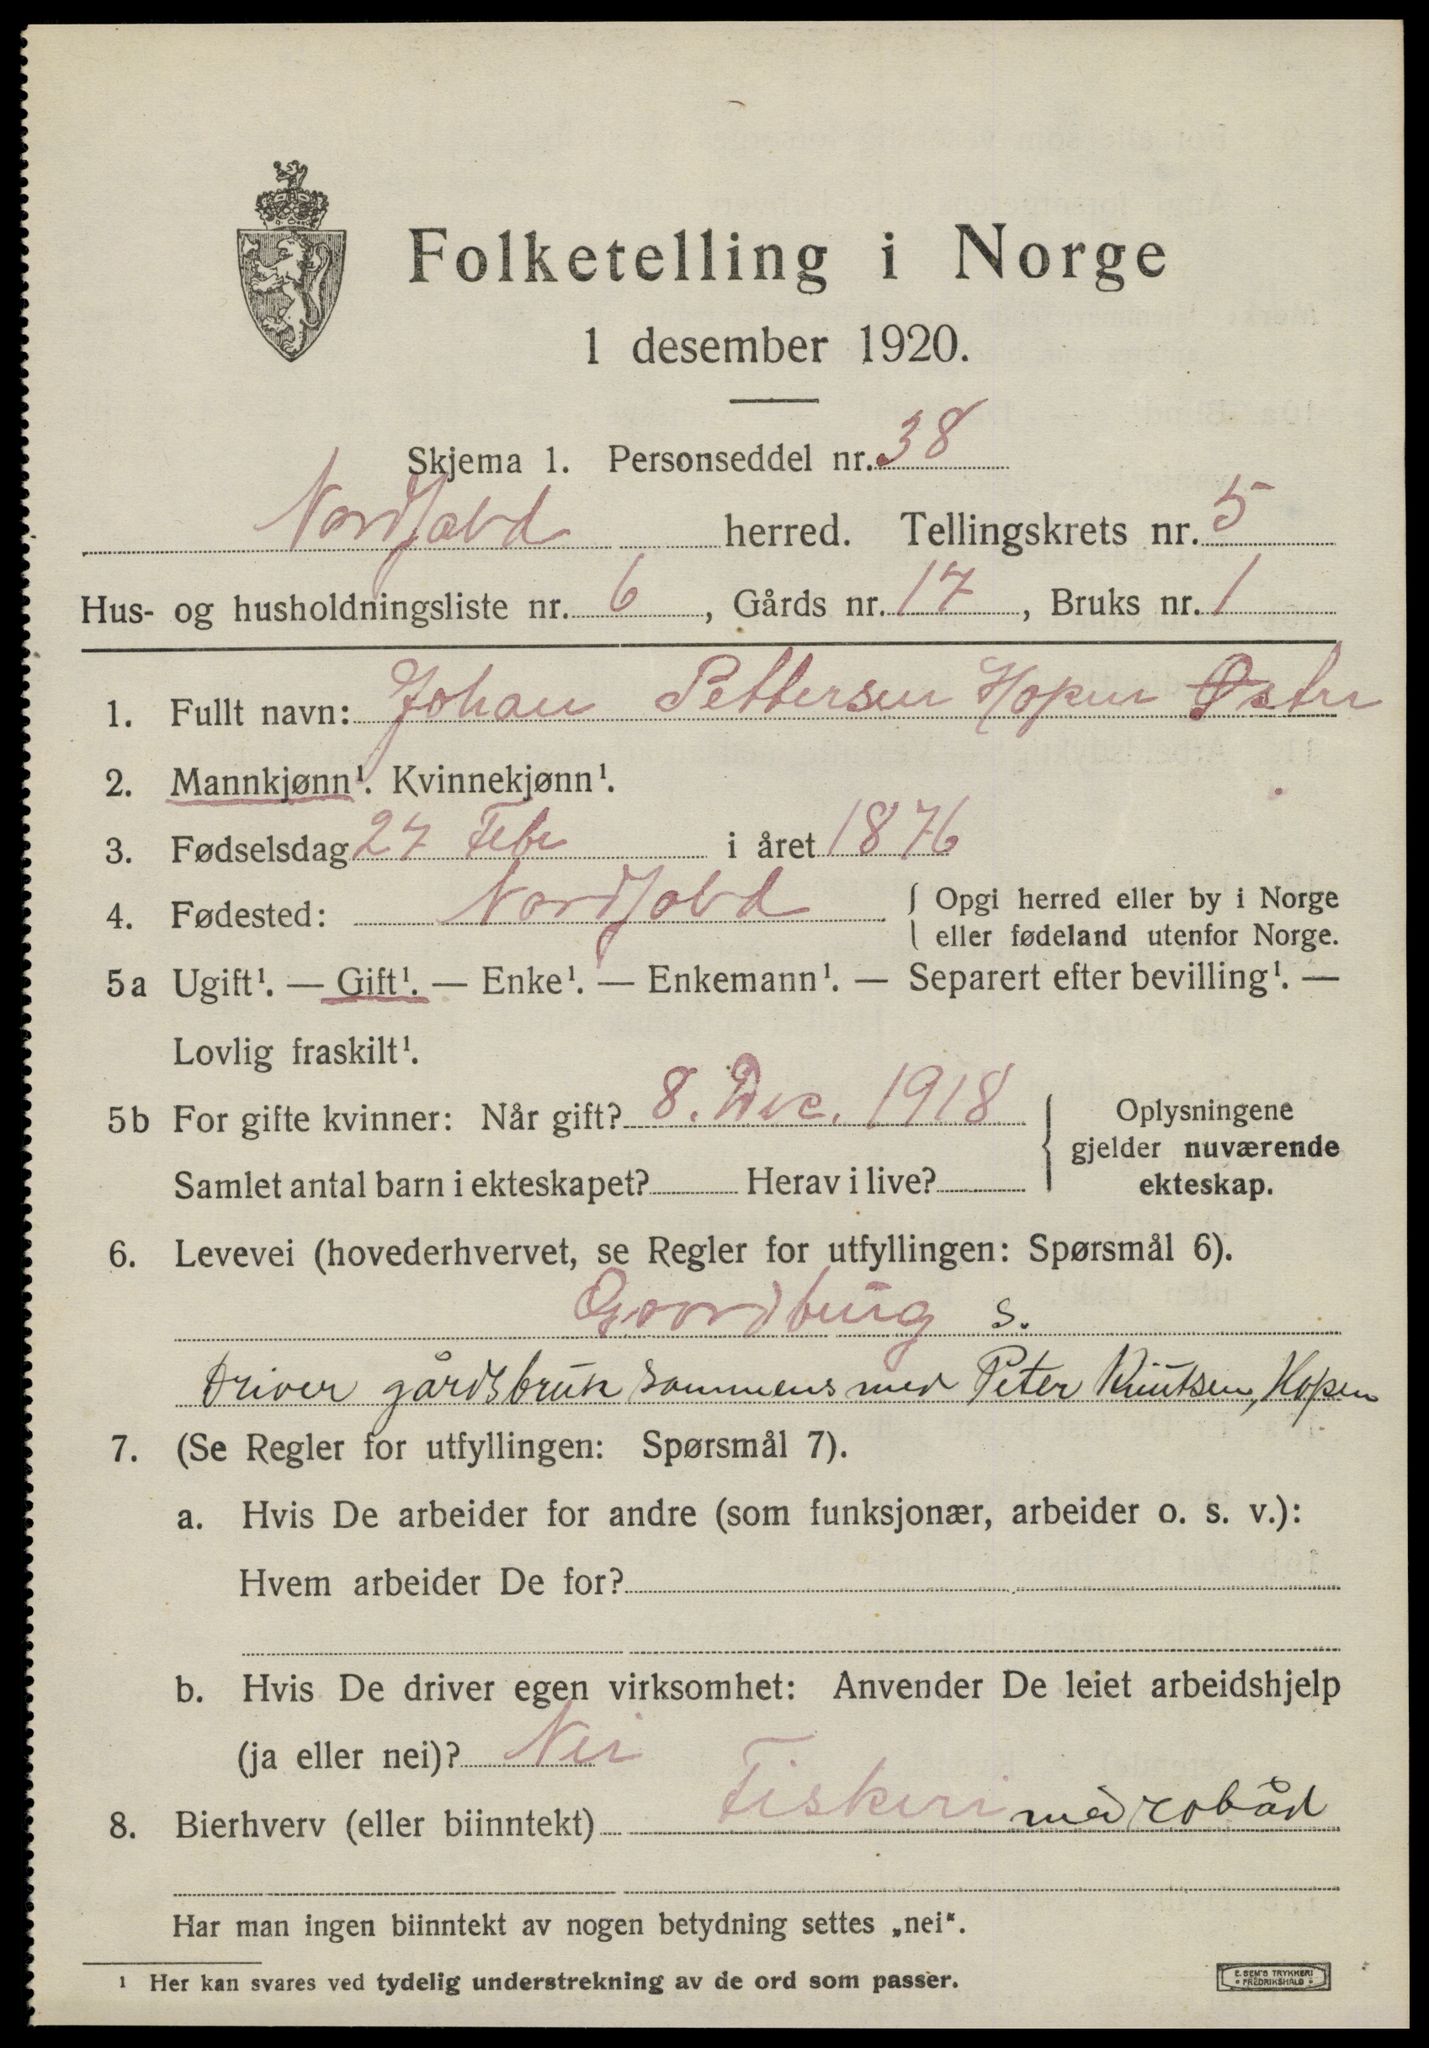 Folketelling i Norge
1 desember 1920.
Skjema 1. Personseddel nr. 38
Nordfold herred. Tellingskrets nr. 5
Hus- og husholdningsliste nr. 6, Gårds nr. 17, Bruks nr. 1
1. Fullt navn: Johan Pettersen Hopen Østre
2. Mannkjønn¹. Kvinnekjønn¹.
3. Fødselsdag 27 Febr i året 1876
4. Fødested: Nordfold { Opgi herred eller by i Norge
eller fødeland utenfor Norge.
5a Ugift¹. — Gift¹. — Enke¹. — Enkemann¹. — Separert efter bevilling¹. —
Lovlig fraskilt¹.
5b For gifte kvinner: Når gift? 8. Dec. 1918 { Oplysningene
gjelder nuværende
Samlet antal barn i ekteskapet? Herav i live? ekteskap.
6. Levevei (hovederhvervet, se Regler for utfyllingen: Spørsmål 6).
s.
Driver gårdsbruk sammens med Peter Knutsen, Hopen
7. (Se Regler for utfyllingen: Spørsmål 7).
a. Hvis De arbeider for andre (som funksjonær, arbeider o. s. v.):
Hvem arbeider De for?
b. Hvis De driver egen virksomhet: Anvender De leiet arbeidshjelp
(ja eller nei)? Nei
8. Bierhverv (eller biinntekt) Fiskeri med robåd
Har man ingen biinntekt av nogen betydning settes „nei“.
¹ Her kan svares ved tydelig understrekning av de ord som passer.
E. SEM'S TRYKKERI
FREDRIKSHALD